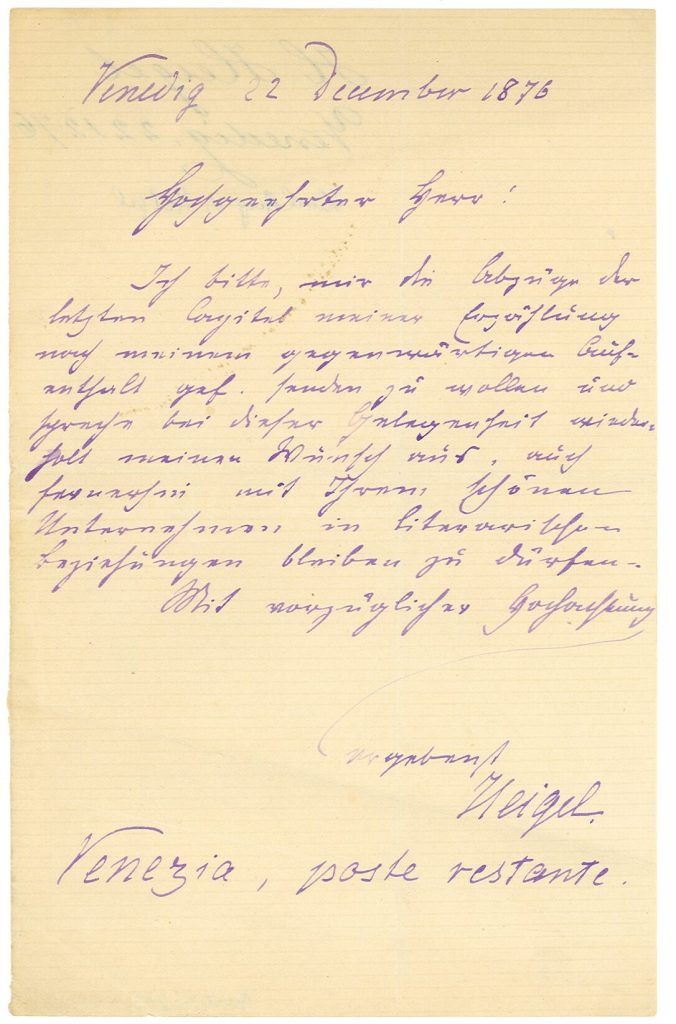 Venedig 22 December 1876
Hochgeehrter Herr!
Ich bitte, mir die Abzüge der
letzten Capitel meiner Erzählung
nach meinem gegenwärtigen Auf-
enthalt gef. senden zu wollen und
spreche bei dieser Gelegenheit wieder-
holt meinen Wunsch aus, auch
fernerhin mit Ihrem schönen
Unternehmen in literarischen
Beziehungen bleiben zu dürfen.
Mit vorzüglicher Hochachtung
ergebenst
Heigel.
Venezia, poste restante.